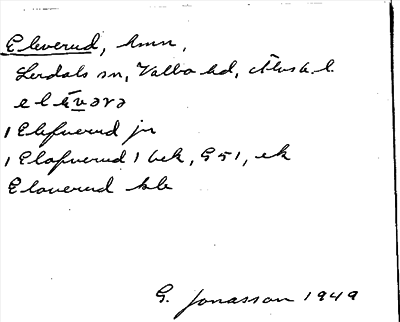 Eleverud, hmn,
Lerdals sn, Valbo hd, Älvsb. l.
1 Elefuerud jr
1 Elofuerud 1 bek, G 51, ek
Eloverud kb
G. Jonasson 1949